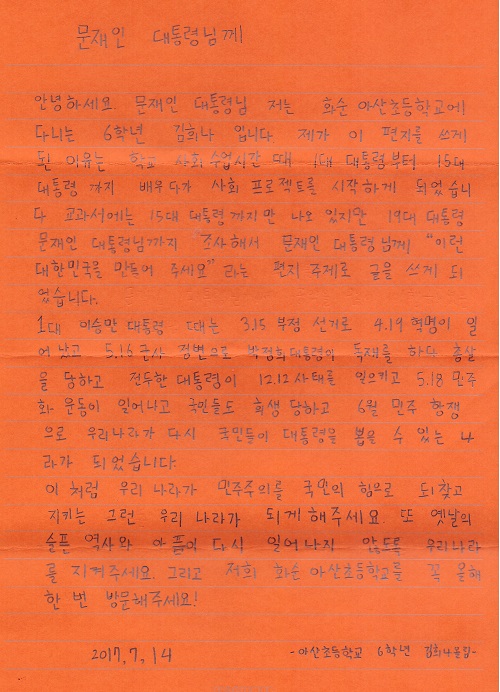 문재인 대통령님께
안녕하세요. 문재인 대통령님 저는 화순 아산초등학교에
다니는 6학년 김희나 입니다 제가 이 편지를 쓰게
된 이유는 학교 사회수업시간 때 1대 대통령부터 15대
대통령 까지 배우다가 사회 프로젝트를 시작하게 되었습니
다 교과서에는 15대 대통령까지만 나오 있지만 19대 대통령
문재인 대통령님까지 조사해서 문재인 대통령님께 "이런
대한민국을 만들어 주세요" 라는 편지 주제로 글을 쓰게 되
었습니다.
1대 이승만 대통령 때는 3.15 부정 선거로 4.19 혁명이 일
어 났고 5.16 군사 정변으로 박정희 대통령이 독재를 하다 총살
을 당하고 전두환 대통령이 12.12 사태를 일으키고 5.18 민주
화 운동이 일어나고 국민들도 희생 당하고 6월 민주 항쟁
으로 우리나라가 다시 국민들이 대통령을 뽑을 수 있는 나
라가 되었습니다
이 처럼 우리 나라가 민주주의를 국민의 힘으로 되찾고
지키는 그런 우리 나라가 되게 해주세요. 또 옛날의
슬픈 역사와 아픔이 다시 일어나지 않도록 우리나라
를 지켜주세요. 그리고 저희 화순 아산초등학교를 꼭 올해
한 번 방문해주세요!
2017, 7, 14 -아산초등학교 6학년 김희나올림-